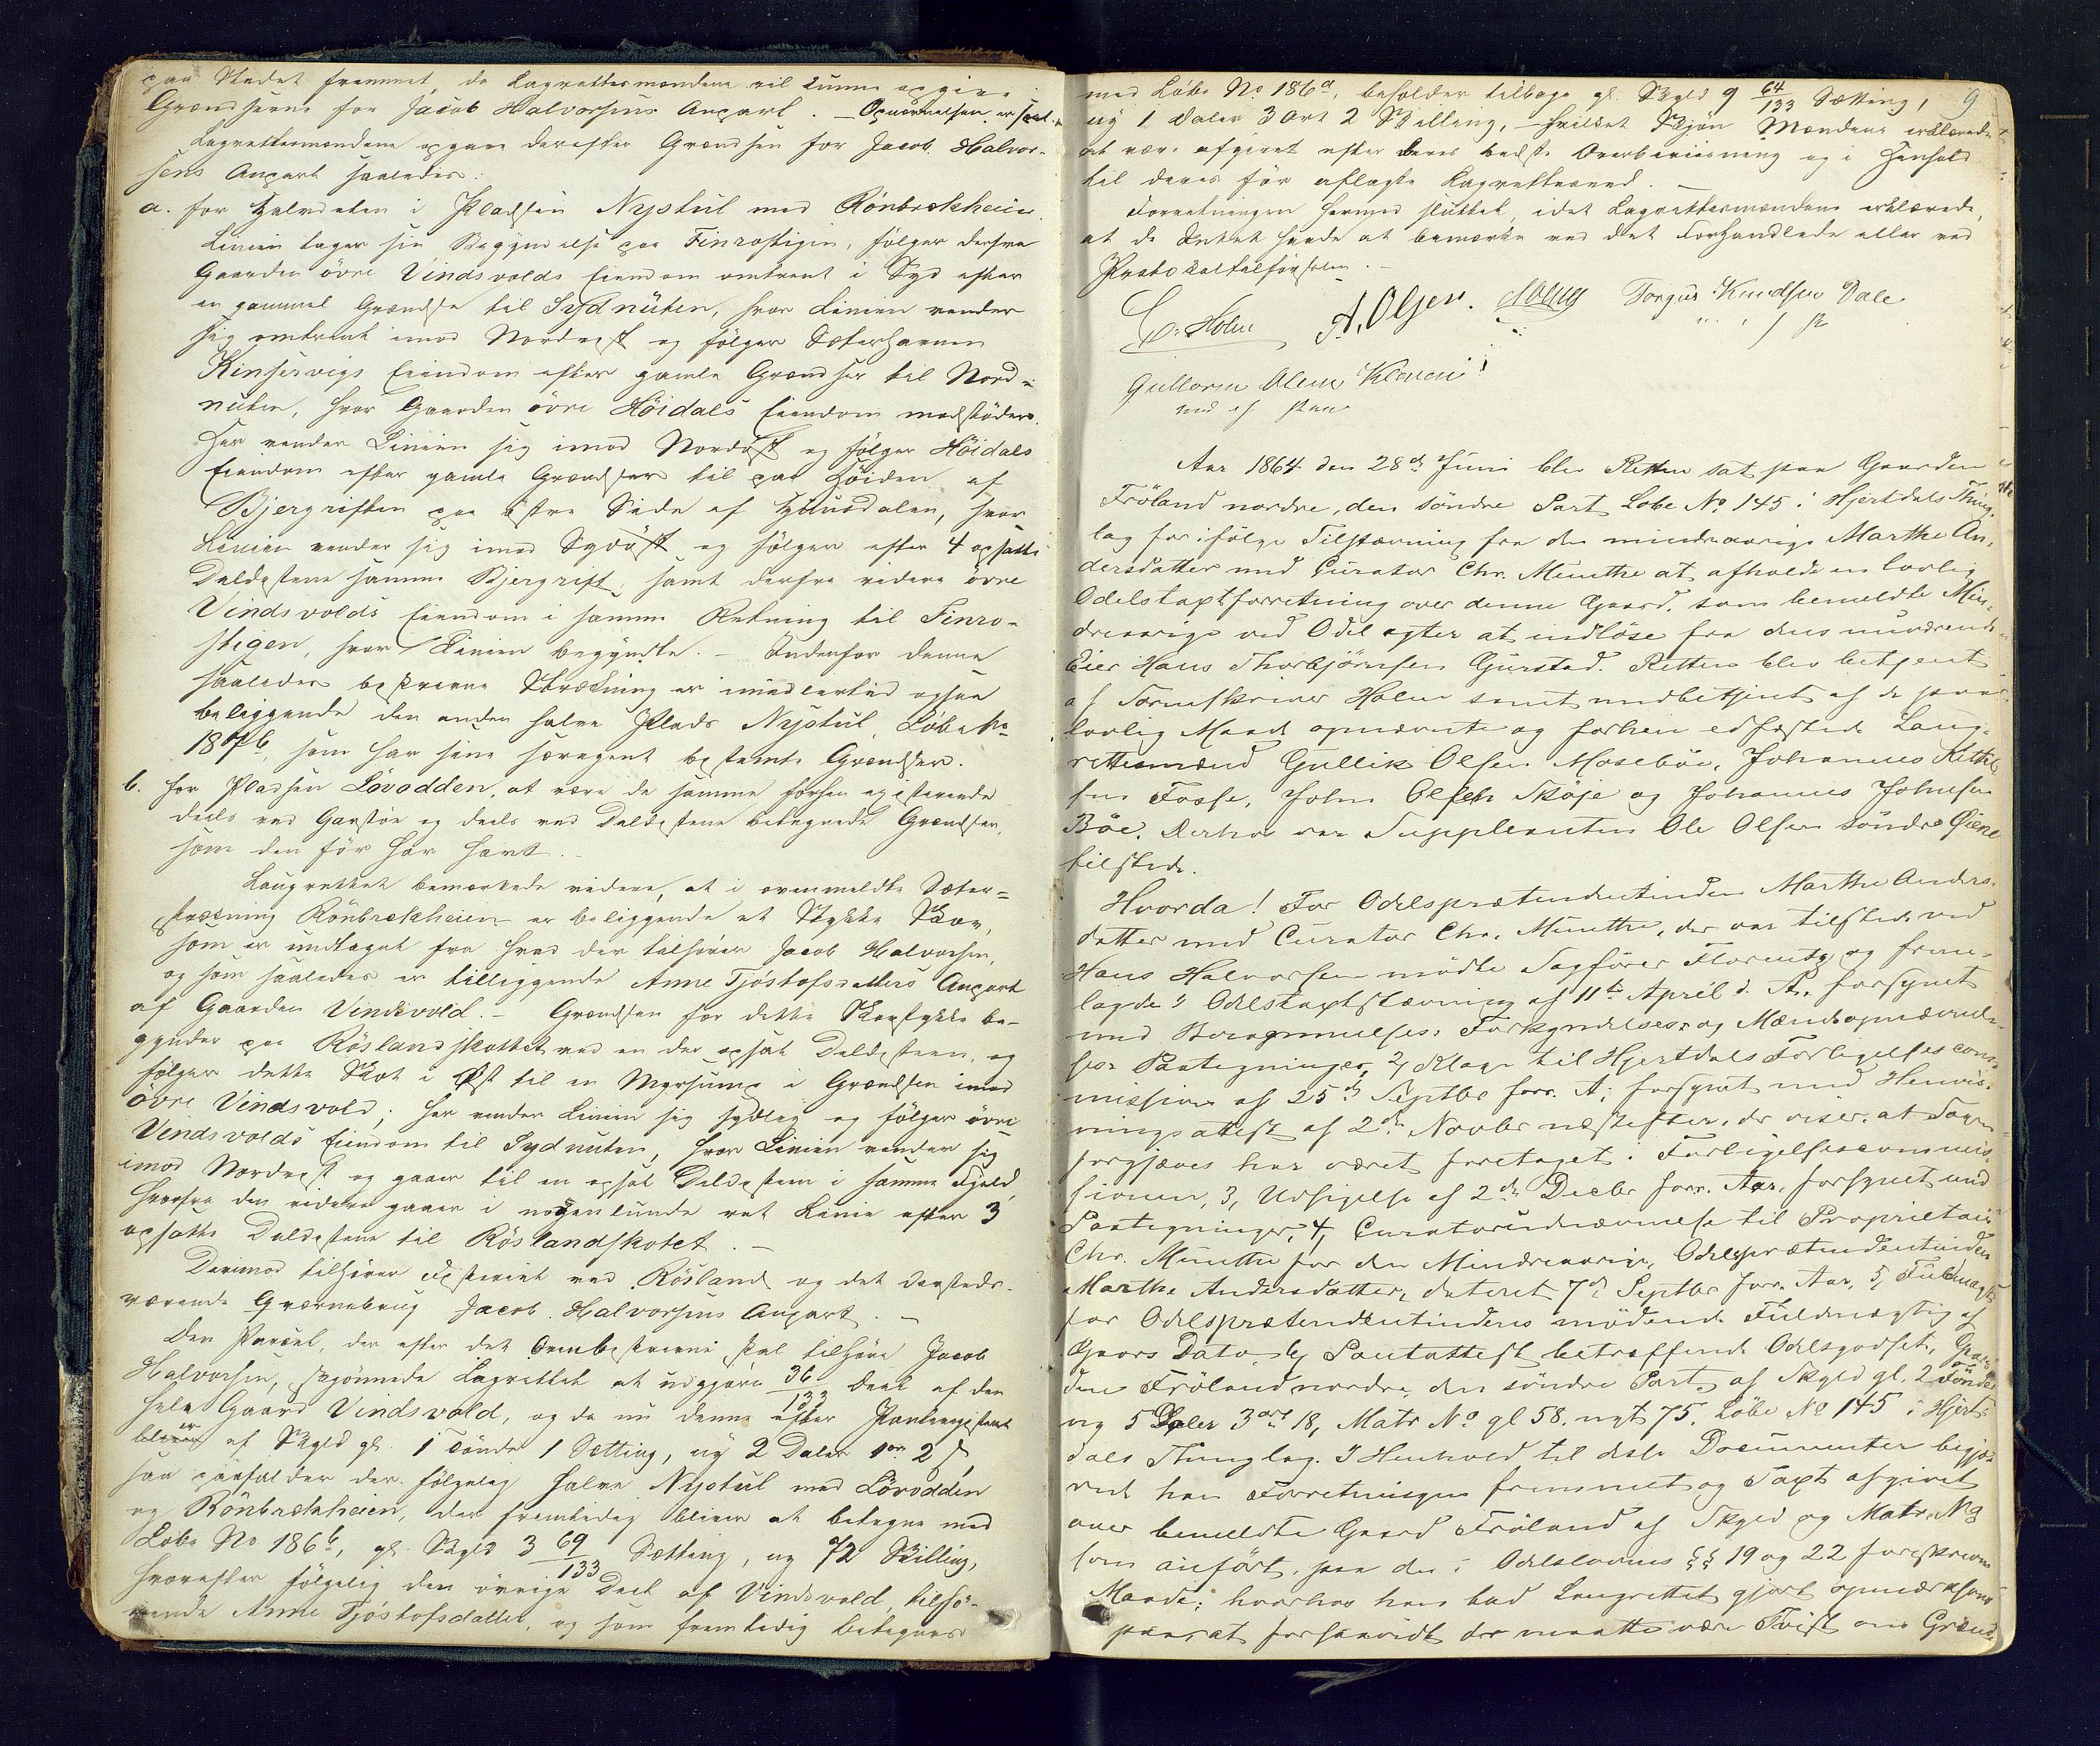 paa Stedet fremmet, da Lagrettesmændene vil kunne opgive
Grændserne for Jacob Halvorsens Anpart. —
Lagrettesmændene opgave derefter Grændsen for Jacob Halvor-
sens Anpart saaledes:
a. for Halvdelen i Pladsen Nystul med Rönbrekheien.
Linien tager sin Begyndelse paa Finrostigen, følger derfra
Gaarden övre Vindsvolds Eiendom omtrent i Syd efter
en gammel Grændse til Sydnuten, hvor Linien vender
sig omtrent imod Nordvest og følger Sæterhavnen
Kinservigs Eiendom efter gamle Grændser til Nord-
nuten, hvor Gaarden övre Höidals Eiendom modstöder.
Her vender Linien sig imod Nordöst og følger Höidals
Eiendom efter gamle Grændser til paa Höiden af
Bjergriften paa östre Side af, hvor
Linien vender sig imod Sydöst og følger efter 4 opsatte
Deldestene samme Bjergrift, samt derfra videre övre
Vindsvolds Eiendom i samme Retning til Finro-
stigen, hvor Linien begyndte. — Indenfor denne
saaledes beskrevne Strækning er imidlertid ogsaa
beliggende den anden halve Plads Nystul, Löbe No
187b, som har sine særegent bestemte Grændser.
b. for Pladsen Lövodden, at være de samme forhen existerende
deels ved Gardstöe og deels ved Deldestene betegnede Grændser,
som den før har havt.
Laugrettet bemærkede videre, at i ovenmeldte Sæter-
strækning Rönbrekheien er beliggende et Stykke Skov,
som er undtaget fra hvad der tilhører Jacob Halvorsen,
og som saaledes er tilliggende Anne Tjöstofsdatters Anpart
af Gaarden Vindsvold. — Grændsen for dette Skovstykke be-
gynder paa Röslandskottet ved en der opsat Deldesteen, og
følger dette Skot i Öst til en Myrsump i Grændsen imod
övre Vindsvold; her vender Linien sig sydlig og følger övre
Vindsvolds Eiendom til Sydnuten, hvor Linien vender sig
imod Nordvest og gaaer til en opsat Deldesteen i samme Fjeld,
hvorfra den videre gaaer i nogenlunde ret Linie efter 3
opsatte Deldestene til Röslandskotet. —
Derimod tilhører ved Rösland og det dersteds
værende Qværnebrug Jacob Halvorsens Anpart. —
Den Parcel, der efter det Ovenbeskrevne skal tilhøre Jacob
Halvorsen, skjønnede Lagrettet at udgjøre 36/133 Deel af den
hele Gaard Vindsvold, og da nu denne efter
er af Skyld gl. 1 Tönde 1 Sætting, ny 2 Daler 1 ort 2 s,
saa paafalder der følgelig halve Nystul med Lövodden
og Rönbrækheien, der fremtidig bliver at betegne med
Löbe No 186b, gl. Skyld 3 69/133 Sætting, ny 72 Skilling,
hvorefter følgelig den övrige Deel af Vindsvold, tilhø-
rende Anne Tjöstofsdatter, og som fremtidig betegnes
9
med Löbe No 186a, beholder tilbage gl. Skyld 9 64/133 Sætting,
ny 1 Daler 3 Ort 2 Skilling, — hvilket Skjön Mændene erklærede
at være afgivet efter deres bedste Overbeviisning og i Henhold
til deres før aflagte Lagretteseed. —
Forretningen hermed sluttet, idet Lagrettesmændene erklærede,
at de Intet havde at bemærke ved det Forhandlede eller ved
Protokoltilførselen. —
Holm A. Olsen. Torgus Knudsen Dale
Gullorm Olsen Kleven
med ef Pen
Aar 1864 den 28de Juni blev Retten sat paa Gaarden
Fröland nordre, den söndre Part Löbe No 145 i Hjertdals Thing-
lag for ifölge Tilstævning fra den mindreaarige Marthe An-
dersdatter med Curator Chr. Munthe at afholde en lovlig
Odelstaxtforretning over denne Gaard, som bemeldte Min-
dreaarige ved Odel agter at indlöse fra dens nuværende
Eier Hans Thorbjörnsen Gurstad. Retten blev betjent
af Sorenskriver Holm samt medbetjent af de paa
lovlig Maade opnævnte og forhen edfæstede Laug-
rettesmænd Gullik Olsen Mosebøe, Johannes Kittil-
sen Fosse, John Olsen Sköje og Johannes Johnsen
Böe. Derhos var Suppleanten Ole Olsen söndre Öiene
tilstede.
Hvorda! For Odelsprætendentinden Marthe Anders-
datter med Curator Chr. Munthe, der var tilstede ved
Hans Halvorsen mödte Sagförer Florentz og frem-
lagde 1, Odelstaxtstævning af 11te April d. A. forsynet
med Berammelses- Forkyndelses- og Mændsopnævnel-
ses Paategninger, 2, Klage til Hjertdals Forligelsescom-
mission af 25de Septbr forr. A, forsynet med Henvis-
ningsattest af 2den Novbr næstefter, der viser, at Sagen
forgjæves har været foretaget i Forligelsescommis-
sionen, 3, Udsigelse af 2den Decbr forr. Aar, forsynet med
Paategninger, 4, Curatorudnævnelse til Proprietair
Chr. Munthe for den Mindreaarige, Odelsprætendentinden
Marthe Andersdatter, dateret 7de Septbr forr. Aar, 5, Fuldmagt
for Odelsprætendentindens mödende Fuldmægtig af
Gaars Dato, 6, Pantattest betræffende Odelsgodset, Gaar-
den Fröland nordre, den söndre Part, af Skyld gl. 2 Tönder
og 5 Daler 3 ort 18, Matr No gl 58. nyt 75. Löbe No 145 i Hjert-
dals Thinglag. I Henhold til disse Documenter begjæ-
rede han Forretningen fremmet og Taxt afgivet
over bemeldte Gaard Fröland af Skyld og Matr. No
som anfört, paa den i Odelslovens §§ 19 og 22 foreskrevne
Maade; hvorhos han bad Laugrettet gjort opmærksom
paa, at forsaavidt der maatte være Tvist om Grænd-